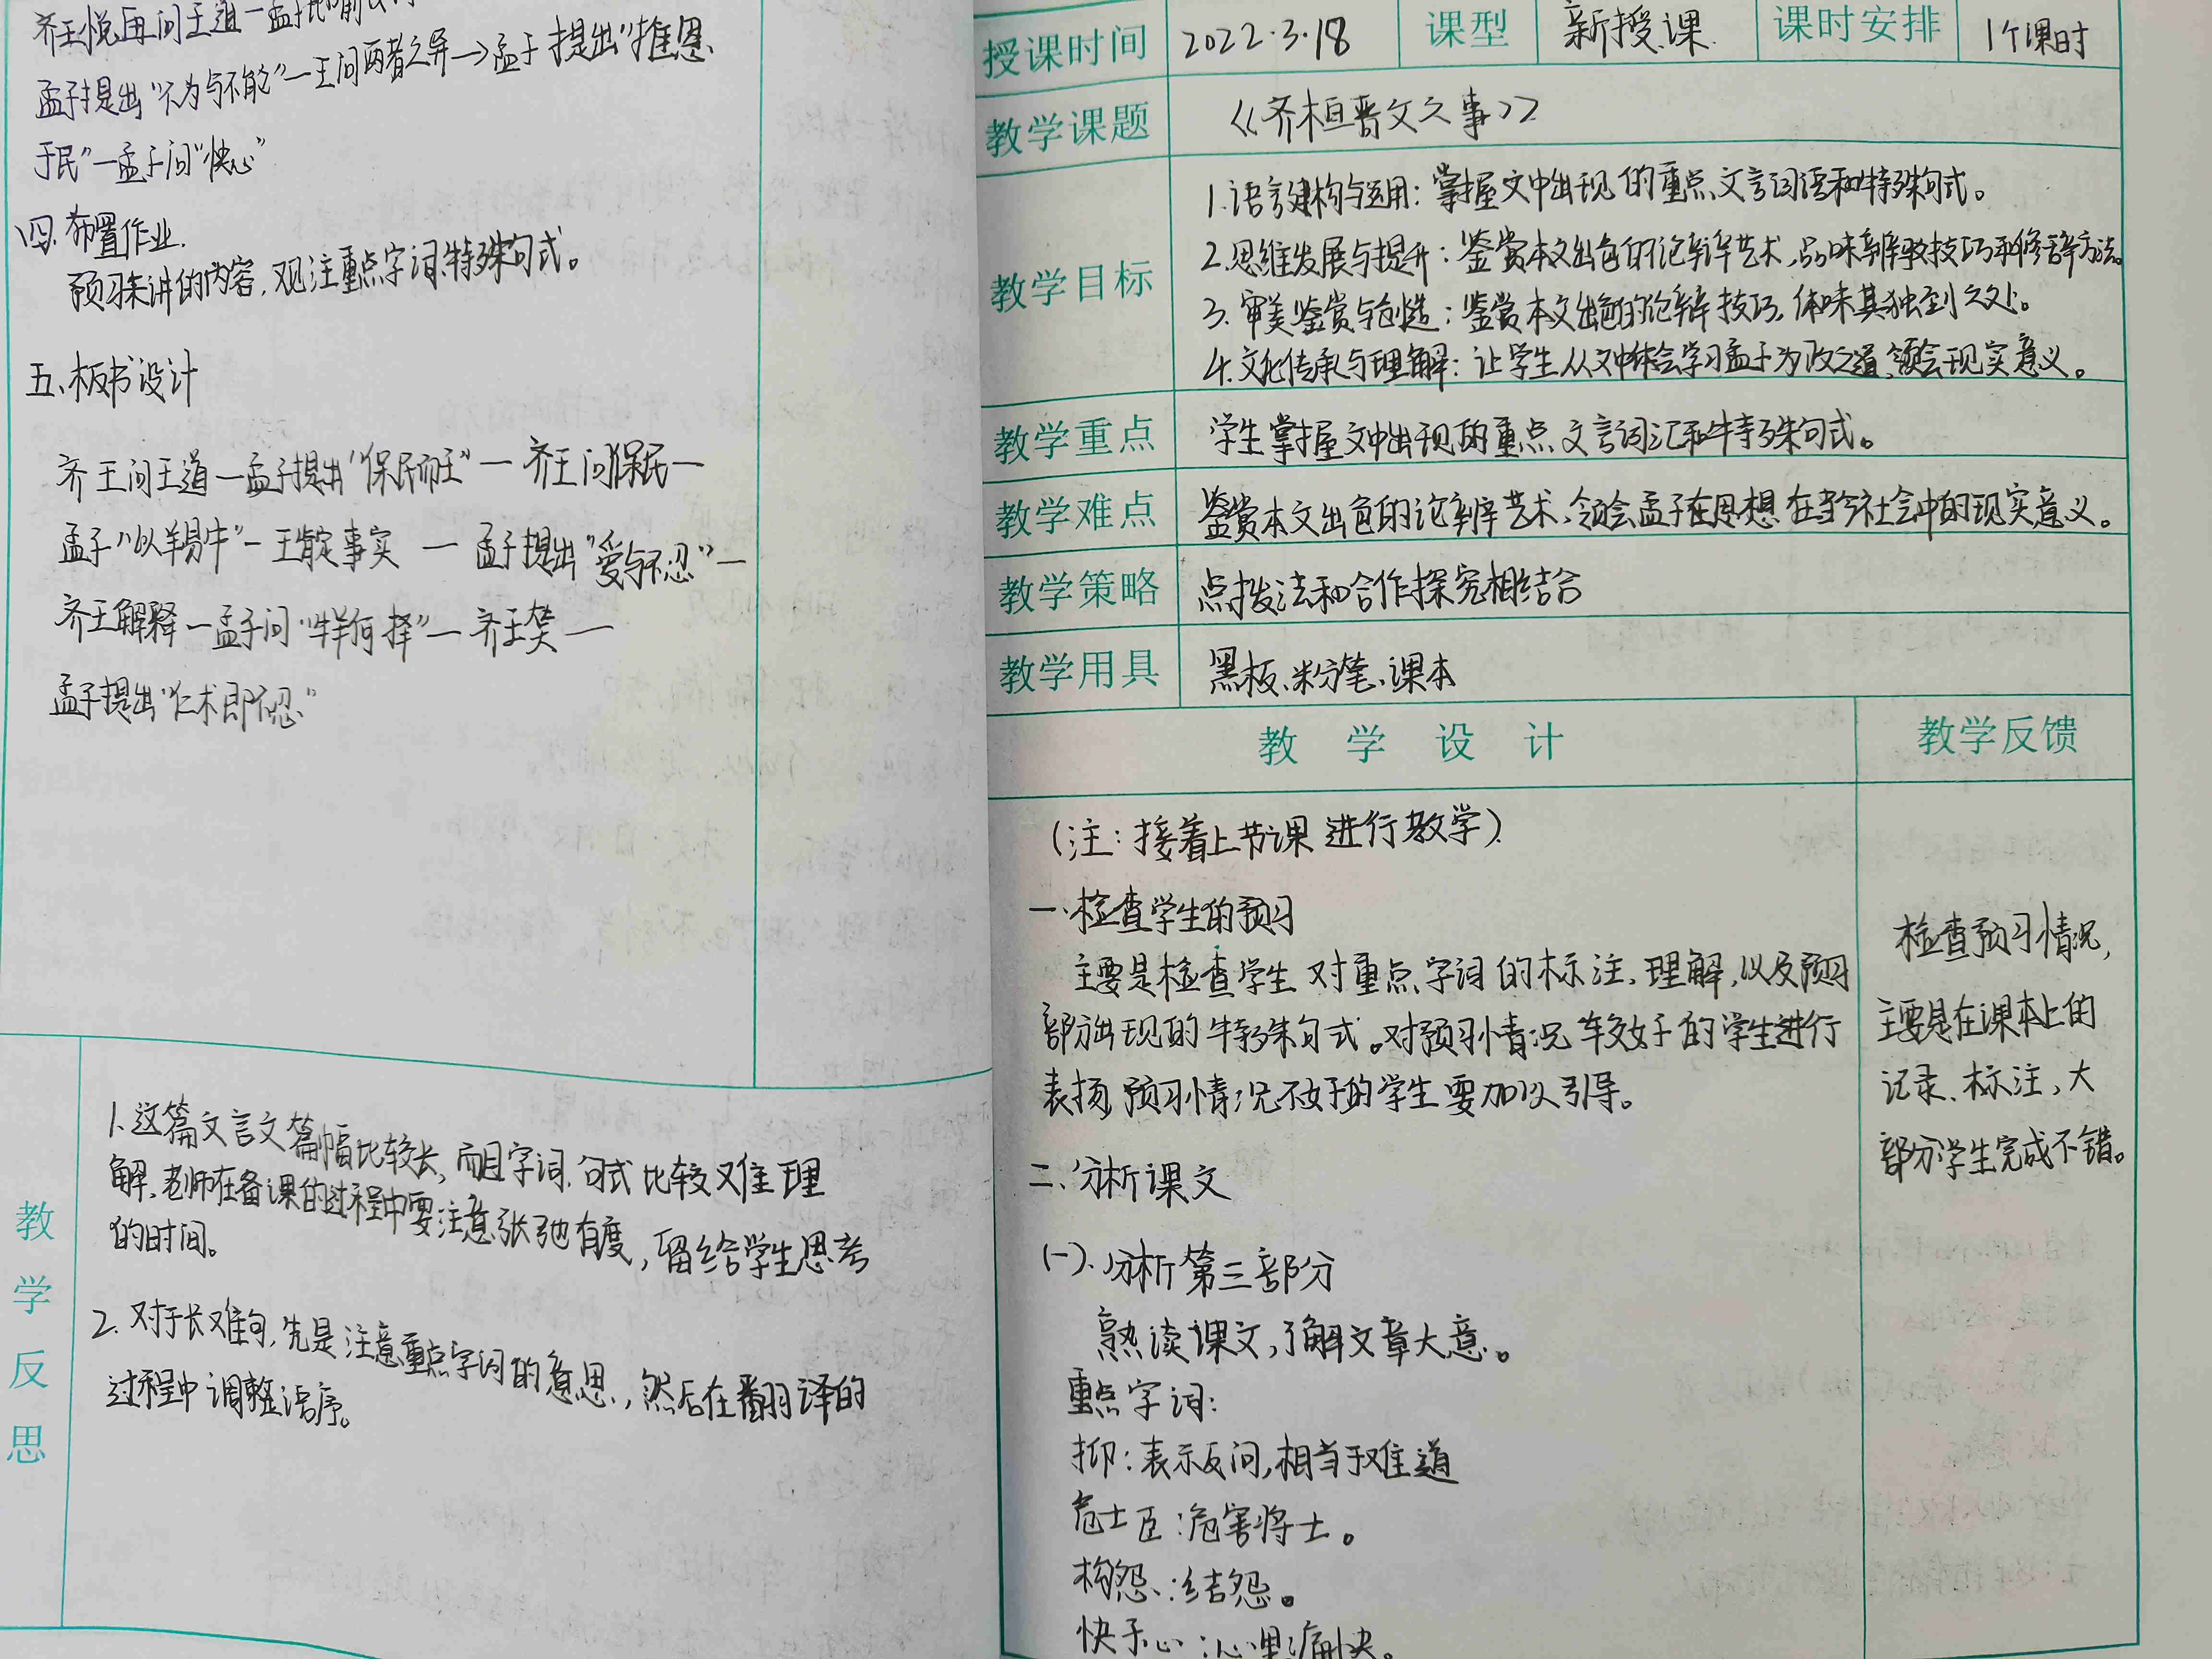 齐王悦再问王道一孟
孟子提出“不为与不能”一王问两者之异→孟子提出“推恩
于民”一孟子问“快心”
四、布置作业.
预习未讲的内容,观注重点字词、特殊句式。
五、板书设计
齐王问王道一孟子提出“保民而王”一齐王问保民一
孟子“以羊易牛”一王肯定事实一孟子提出“爱与不忍”一
齐王解释一孟子问“牛羊何择”一齐王笑一
孟子提出“仁术即不忍”
教学反思
1.这篇文言文篇幅比较长,而且字词、句式比较难理
解,老师在备课的过程中要注意张弛有度,留给学生思考
的时间。
2.对于长难句,先是注意重点字词的意思,然后在翻译的
过程中调整语序。
授课时间 2022.3.18 课型 新授课. 课时安排 1个课时
教学课题 《齐桓晋文之事》
教学目标
1.语言建构与运用:掌握文中出现的重点文言词语和特殊句式。
2.思维发展与提升:鉴赏本文出色的论辩艺术,品味辩驳技巧和修辞方法。
3.审美鉴赏与创造:鉴赏本文出色的论辩技巧,体味其独到之处。
4.文化传承与理解:让学生从文中体会学习孟子为政之道,领会现实意义。
教学重点 学生掌握文中出现的重点文言词汇和特殊句式。
教学难点 鉴赏本文出色的论辩艺术,领会孟子在思想在当今社会中的现实意义。
教学策略 点拨法和合作探究相结合
教学用具 黑板、粉笔、课本
教学设计 教学反馈
(注:接着上节课进行教学)
一、检查学生的预习
主要是检查学生对重点字词的标注、理解,以及预习
部分出现的特殊句式。对预习情况较好的学生进行
表扬,预习情况不好的学生要加以引导。
二、分析课文
(一)、分析第三部分
熟读课文,了解文章大意。
重点字词:
抑:表示反问,相当于难道
危士臣:危害将士。
构怨:结怨。
快于心:心里痛快。
检查预习情况,
主要是在课本上的
记录、标注,大
部分学生完成不错。